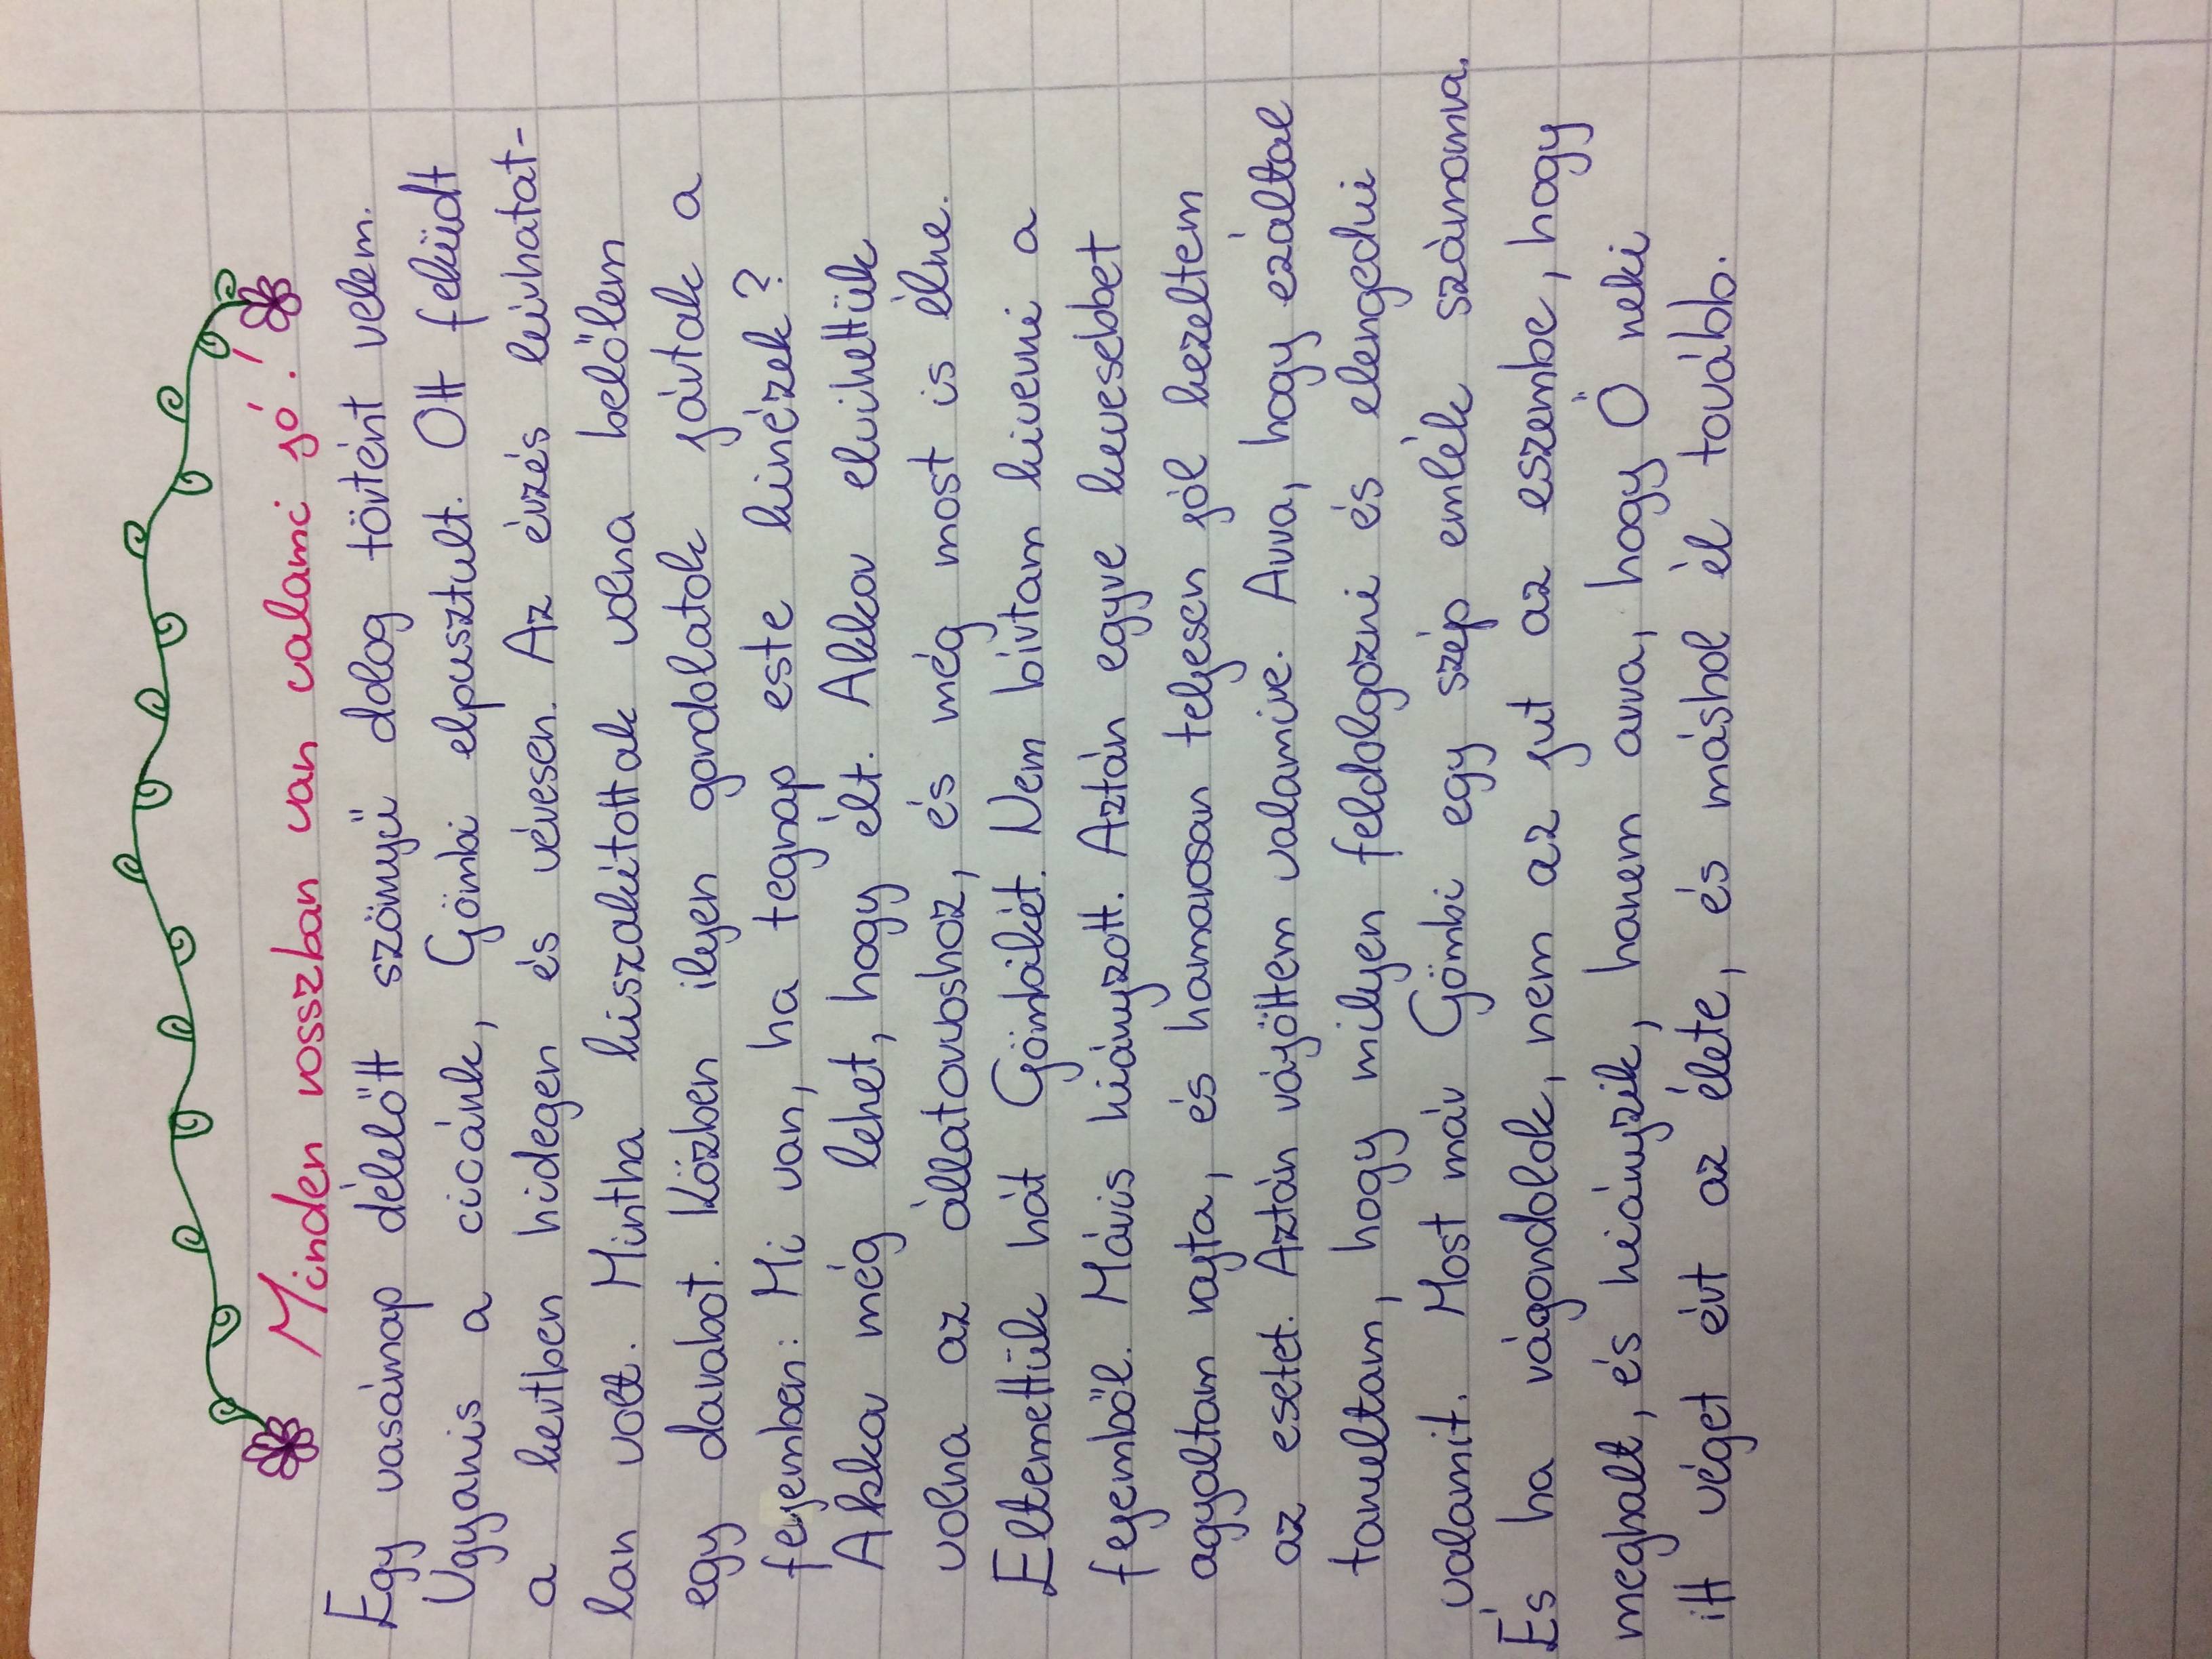 Minden rosszban van valami jó!
Egy vasárnap délelőtt szörnyű dolog történt velem.
Ugyanis a cicánk, Gömbi elpusztult. Ott feküdt
a kertben hidegen és véresen. Az érzés leírhatat-
lan volt. Mintha kiszakítottak volna belőlem
egy darabot. Közben ilyen gondolatok jártak a
fejemben: Mi van, ha tegnap este kinézek?
Akkor még lehet, hogy élt. Akkor elvihettük
volna az állatorvoshoz, és még most is élne.
Eltemettük hát Gömbikét. Nem bírtam kiverni a
fejemből. Máris hiányzott. Aztán egyre kevesebbet
agyaltam rajta, és hamarosan teljesen jól kezeltem
az esetet. Aztán rájöttem valamire. Arra, hogy ezáltal
tanultam, hogy milyen feldolgozni és elengedni
valamit. Most már Gömbi egy szép emlék számomra.
És ha rágondolok, nem az jut az eszembe, hogy
meghalt, és hiányzik, hanem arra, hogy Ő neki
itt véget ért az élete, és máshol él tovább.